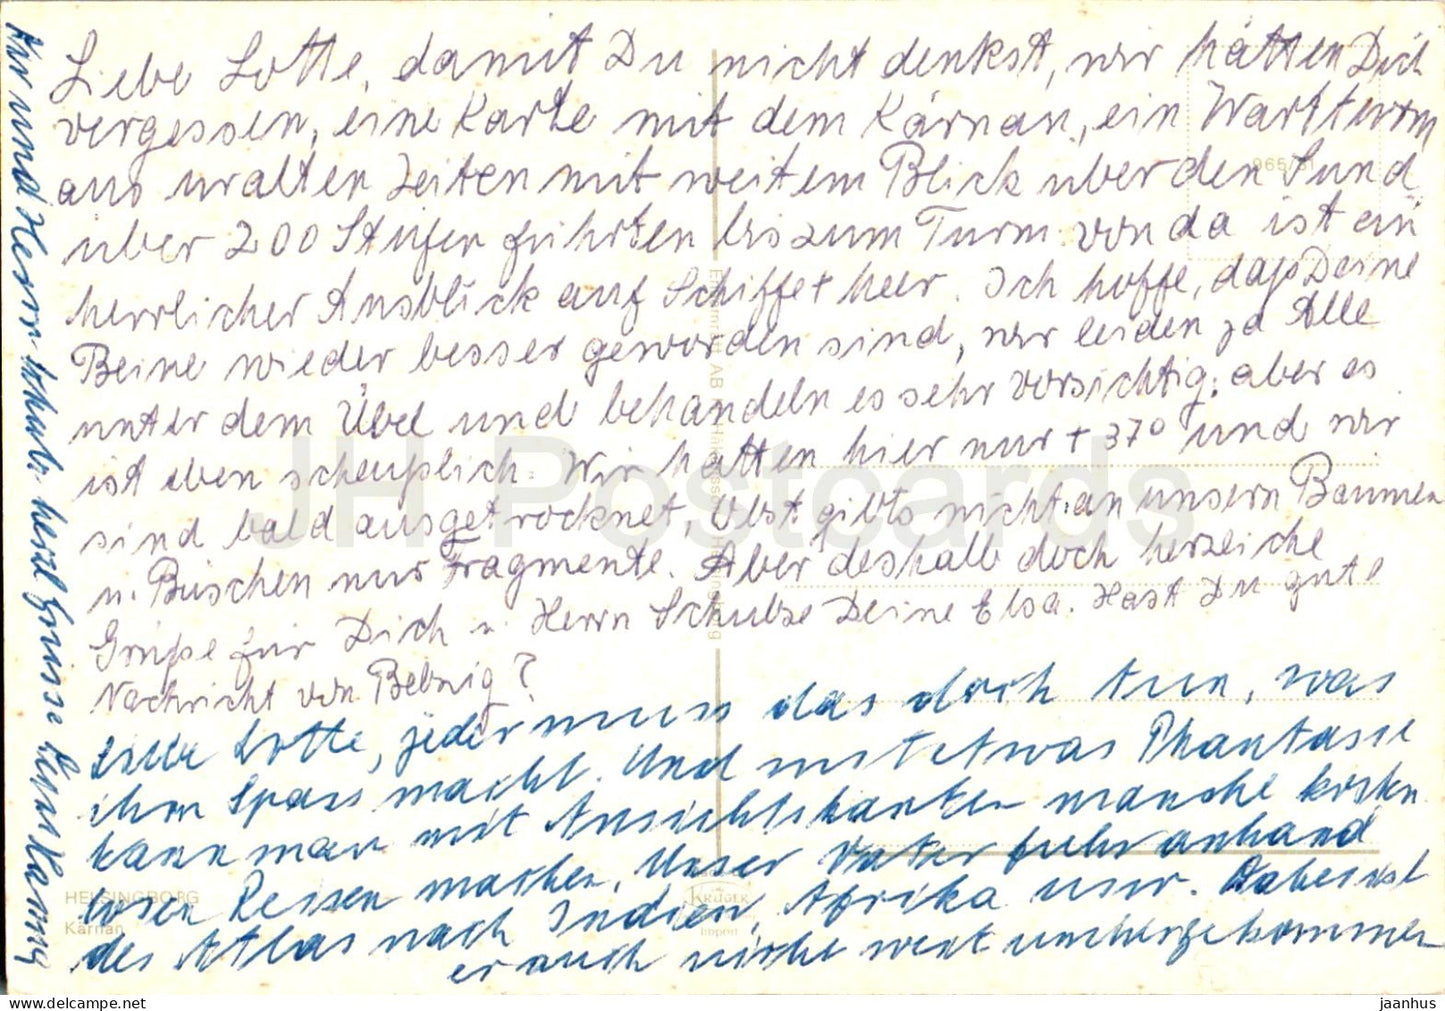 Liebe Lotte, damit Du nicht denkst, wir hätten Dich
vergessen, eine Karte mit dem Kärnan, ein Wartturm
aus uralten Zeiten mit weitem Blick über den Sund
über 200 Stufen führten bis zum Turm. von da ist ein
herrlicher Ausblick auf Schiffe + Meer. Ich hoffe, daß Deine
Beine wieder besser geworden sind, wir leiden ja Alle
unter dem Übel und behandeln es sehr vorsichtig, aber es
ist eben scheußlich. Wir hatten hier nur + 37° und wir
sind bald ausgetrocknet, Obst gibts nicht. an unsern Bäumen
u. Büschen nur Fragmente. Aber deshalb doch herzliche
Grüße für Dich u. Herrn Schulze Deine Elsa. Hast Du gute
Nachricht von Belzig?
Liebe Lotte, jeder muss das doch tun, was
ihm Spass macht. Und mit etwas Phantasie
kann man mit Ansichtskarten manche kosten
losen Reisen machen. Unser Vater fuhr anhand
des Atlas nach Indien, Afrika usw. Dabei ist
er auch nicht weit umhergekommen
Dir und Herrn herzl Grüsse
HELSINGBORG
Kärnan
965/61
KRÜGER
JH Postcards
jaanhus